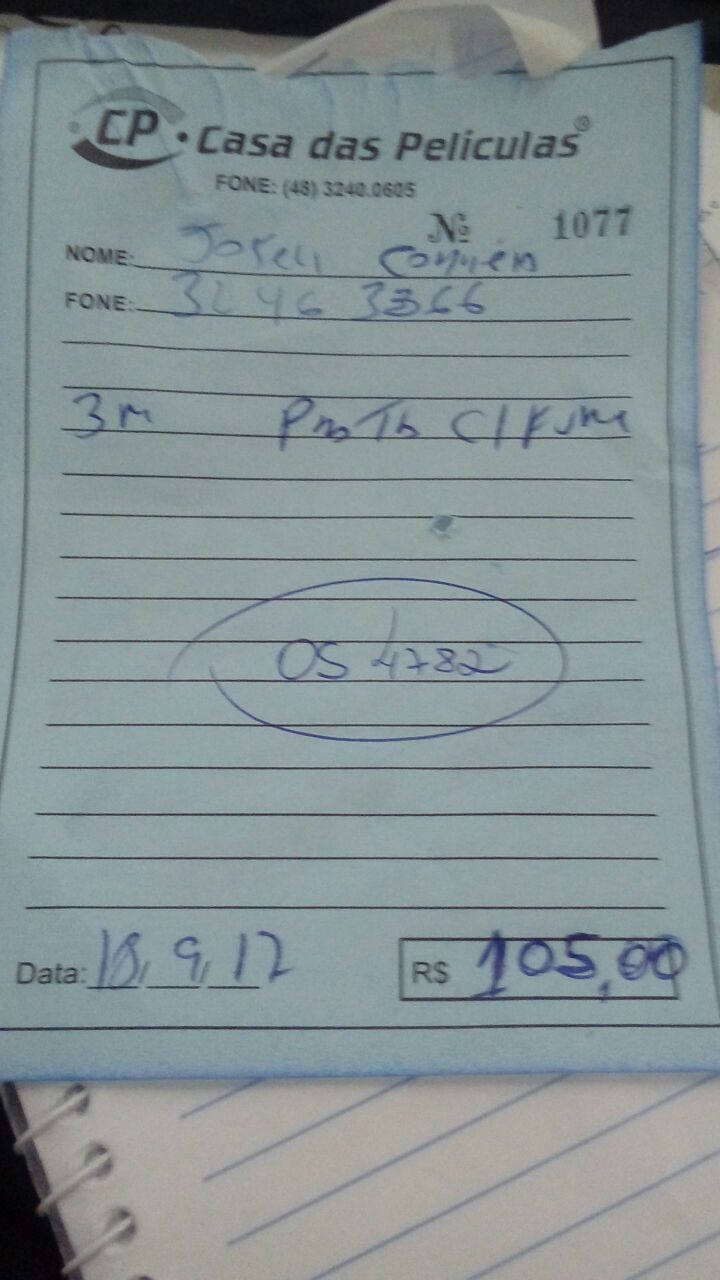 CP • Casa das Peliculas®
FONE: (48) 3240.0605
Nº 1077
NOME:
FONE: 3246 3366
3m C/
OS 4782
Data: 18, 9, 12 R$ 105,00